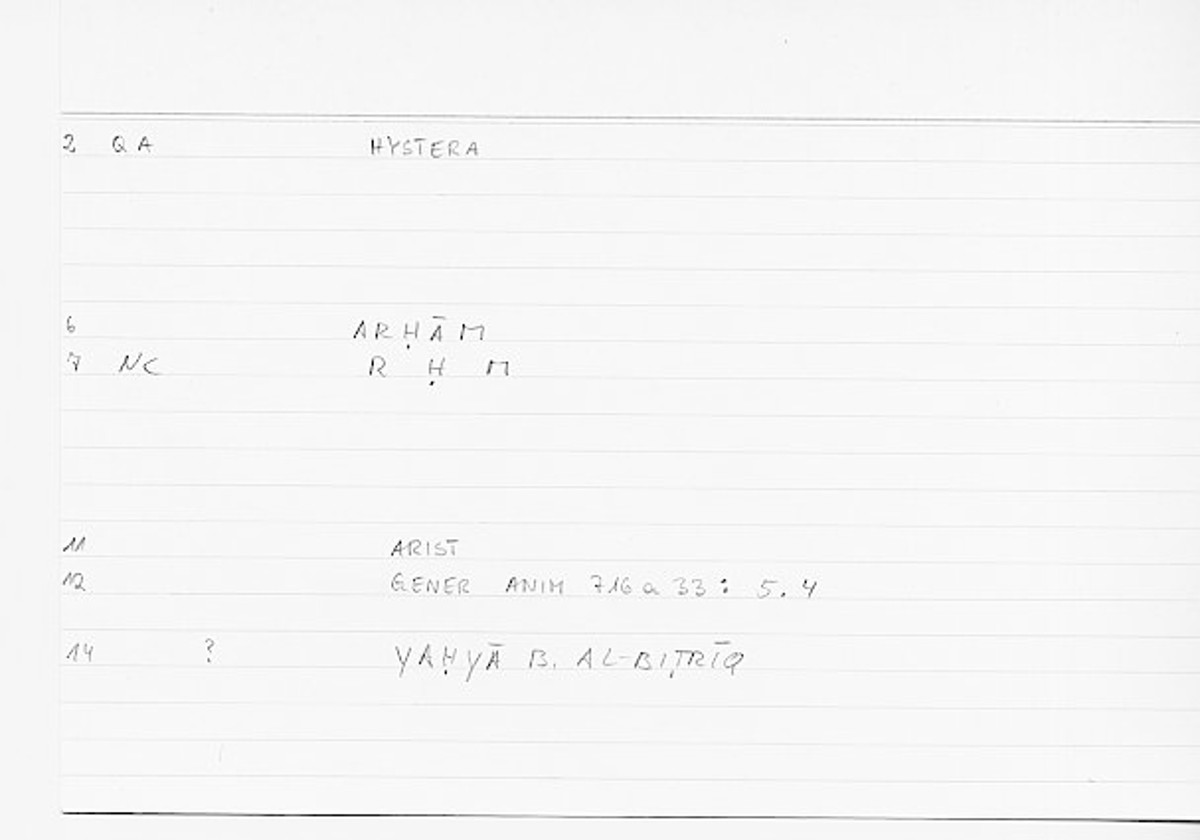 2 QA HYSTERA
6 ARḤĀM
7 NC R Ḥ M
11 ARIST
12 GENER ANIM 716 a 33 : 5.4
14 ? YAḤYĀ B. AL-BIṬRĪQ